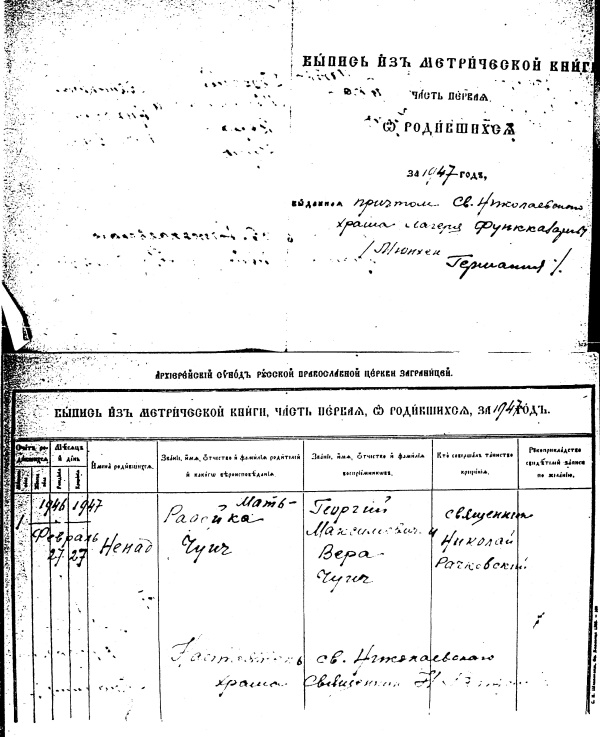 ВЫПИСЬ ИЗЪ МЕТРИЧЕСКОЙ КНИГИ
ЧАСТЬ ПЕРВАЯ
Ѡ РОДИВШИХСЯ
ЗА 1947 ГОДЪ,
ВЫДАННАЯ причтом Св. Николаевского
храма лагеря Функказарм
/Мюнхен
Германия/.
АРХІЕРЕЙСКІЙ СѴНОДЪ РУССКОЙ ПРАВОСЛАВНОЙ ЦЕРКВИ ЗАГРАНИЦЕЙ.
ВЫПИСЬ ИЗЪ МЕТРИЧЕСКОЙ КНИГИ, ЧАСТЬ ПЕРВАЯ, Ѡ РОДИВШИХСЯ, ЗА 1947 ГОДЪ.
Счетъ родившихся.
Мѣсяцъ и день
Имена родившихся.
Званіе, имя, отчество и фамилія родителей и какого вѣроисповѣданія
Званіе, имя, отчество и фамилія воспріемниковъ.
Кто совершалъ таинство крещенія.
Рукоприкладство свидѣтелей записи по желанію.
1
1946 1947
Февраль
27 27
Ненад
Мать-
Радойка
Чуич
Георгий
Максимович и
Вера
Чуич
священник
Николай
Рачковский
Настоятель св. Николаевского
храма Священник Н.